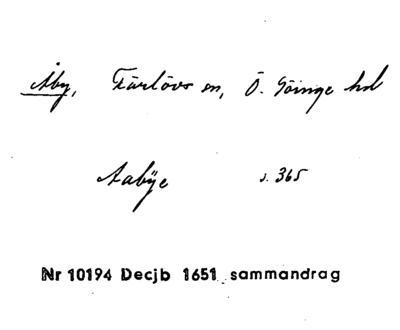 Åby, Färlövs sn, Ö. Göinge hd
Aabÿe s. 365
Nr 10194 Decjb 1651 sammandrag